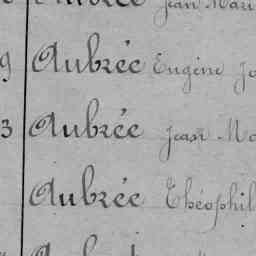 Aubrée Jean Mari
9 Aubrée Eugène Jo
3 Aubrée Jean Ma
Aubrée Théophil